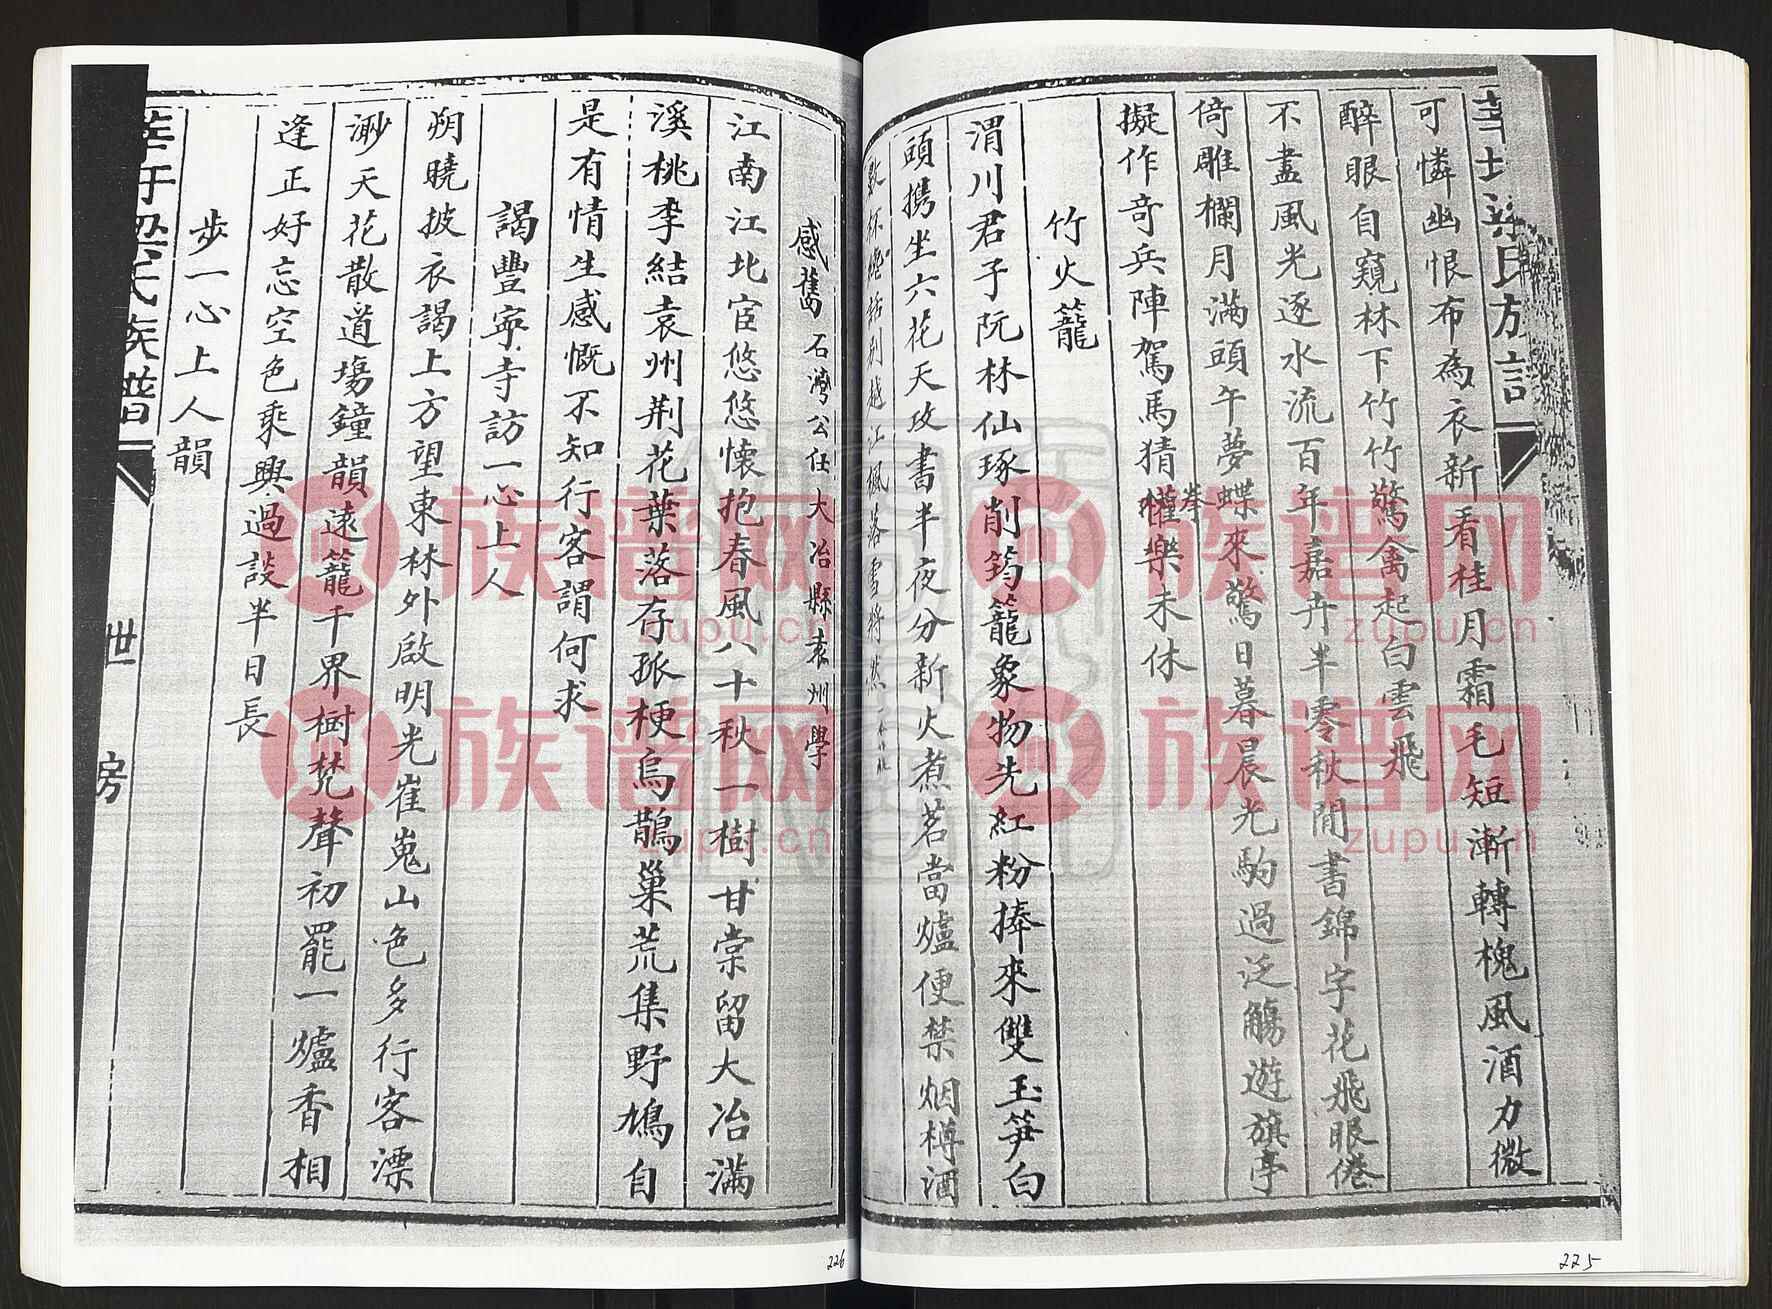 可憐幽恨布為衣新看桂月霜毛短漸轉槐風酒力微
醉眼自窺林下竹竹驚禽起白雲飛
不盡風光逐水流百年嘉卉半零秋閒書錦字花飛眼倦
倚雕欄月滿頭午夢蝶來驚日暮晨光駒過泛觴遊旗亭
擬作奇兵陣駕馬猜權拳樂未休
竹火籠
渭川君子阮林仙琢削筠籠象物先紅粉捧來雙玉筍白
頭攜坐六花天攻書半夜分新火煮茗當爐便禁烟樽酒
感舊 石灣公任大冶縣袁州學
江南江北宦悠悠懷抱春風八十秋一樹甘棠留大冶滿
溪桃李結袁州荆花葉落存孤梗烏鵲巢荒集野鳩自
是有情生感慨不知行客謂何求
謁豐寧寺訪一心上人
朔曉披衣謁上方望東林外啟明光崔嵬山色多行客漂
渺天花散道場鐘韻遠籠千界樹梵聲初罷一爐香相
逢正好忘空色乘興過談半日長
步一心上人韻
氏族譜
世
房
226
225
族谱网
zupu.cn
族谱网
zupu.cn
族谱网
zupu.cn
族谱网
zupu.cn